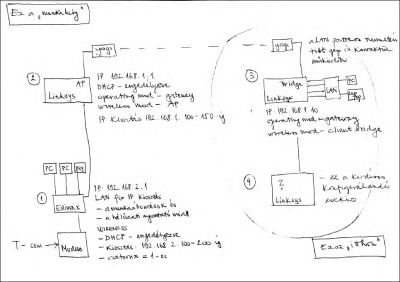 Ez a „munkahely"
yagi
yagi
a LAN portokon
több gép is korrektül
működik
②
AP
Linksys
IP 192.168.1.1
DHCP - engedélyezve
operating mod - gateway
wireless mod - AP
IP kiosztás 192.168.1.100-150-ig
③
Bridge
Linksys
LAN
PC
IP: 192.168.1.10
operating mod - gateway
wireless mod - client bridge
PC
PC
①
Edimax
IP: 192.168.2.1
LAN fix IP kiosztás
- a munkaállomások és
- a hálózati nyomtató miatt
WIRELESS
- DHCP - engedélyezve
- Kiosztás: 192.168.2.100-200-ig
- csatorna = 1-es
T-com
Modem
④
?
Linksys
- ez a kérdéses
konfigurálandó
eszköz
Ez az „itthon"